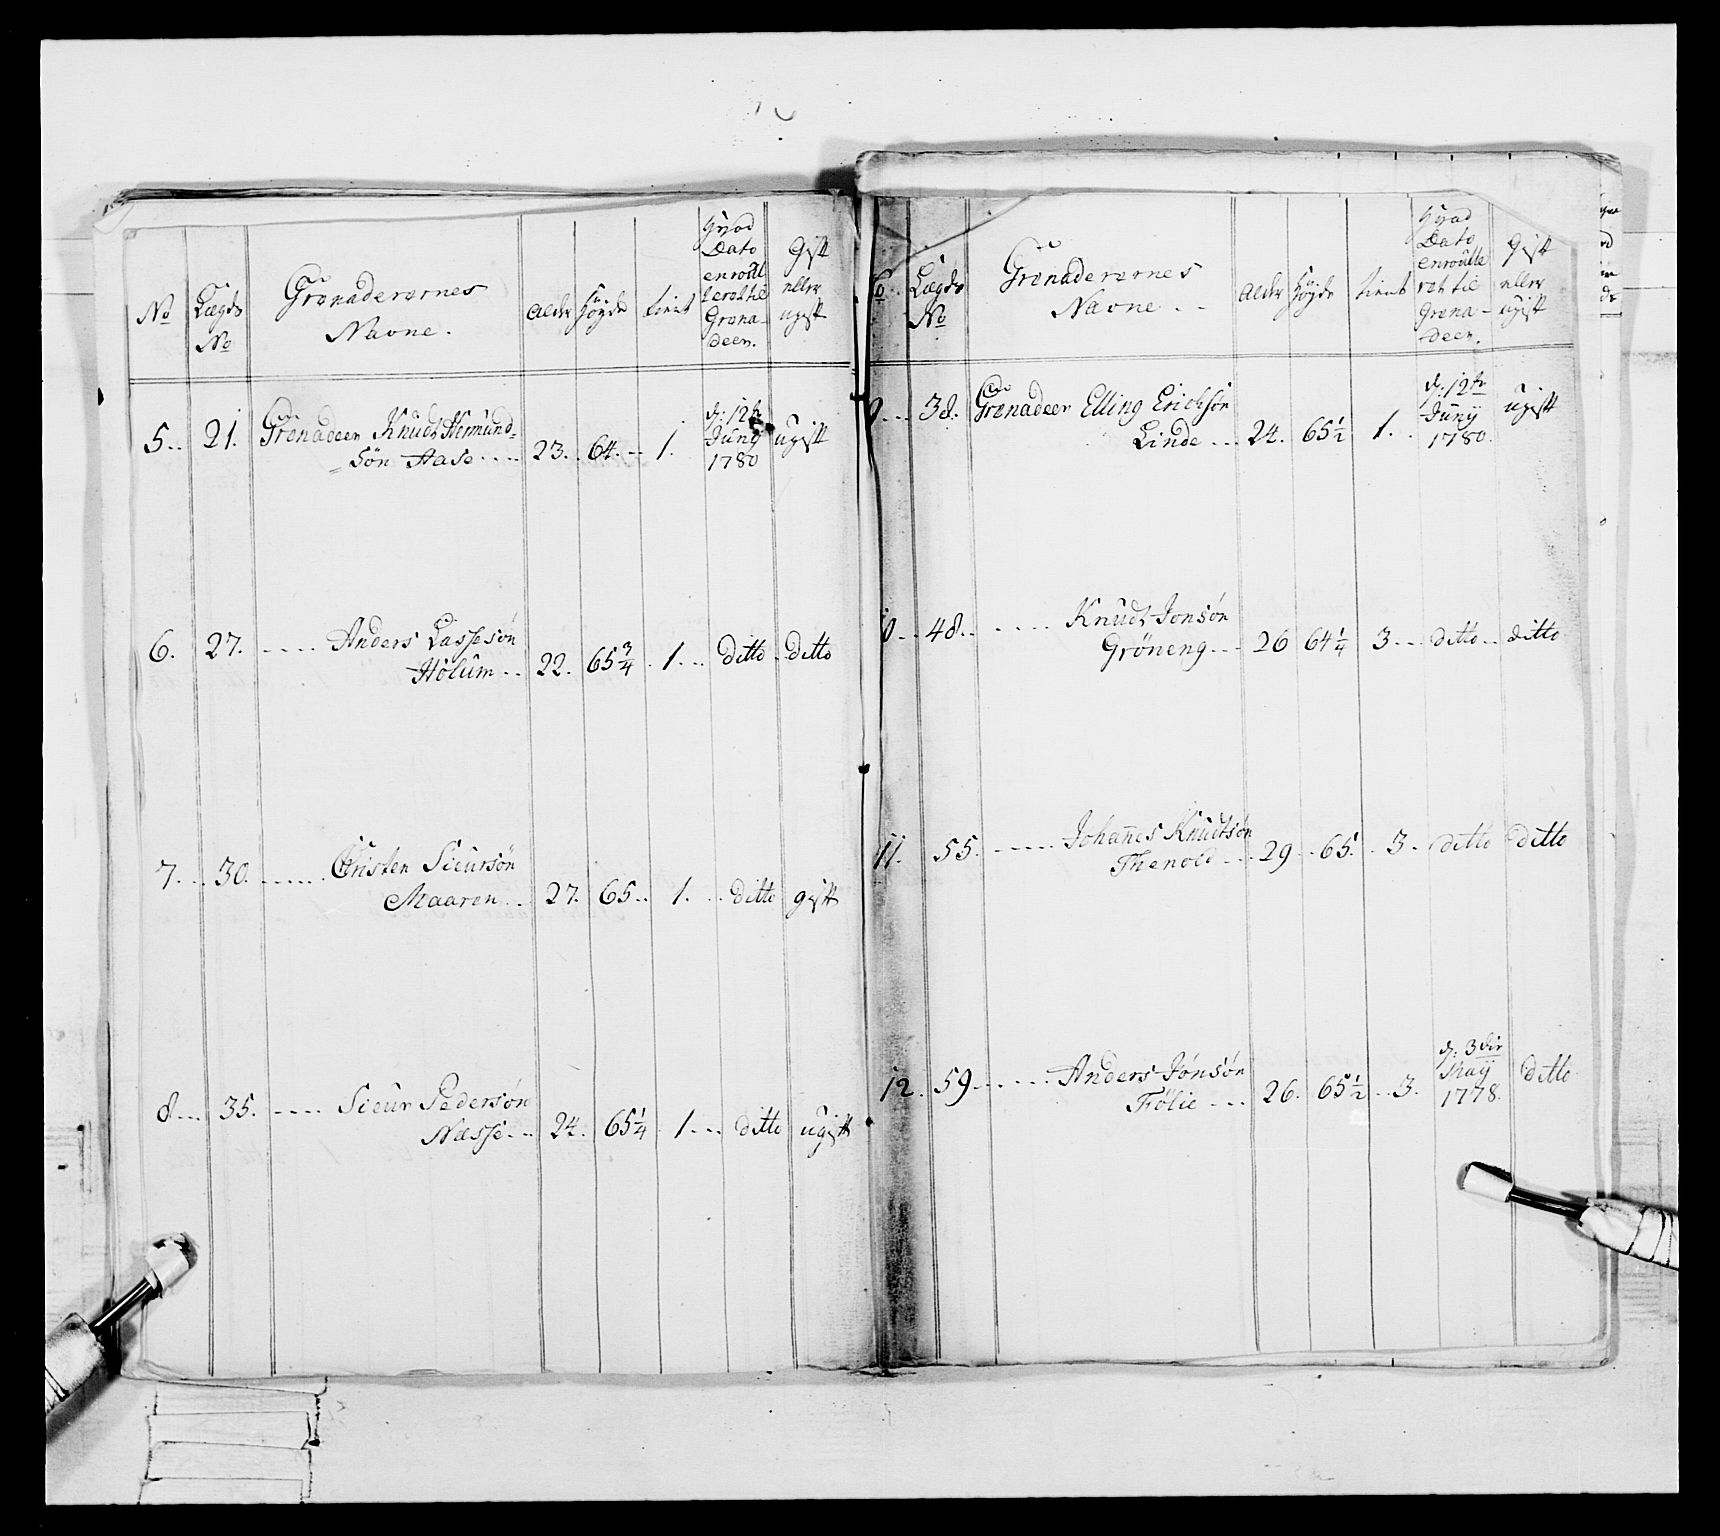 No
Lægds No
Grenaderernes
Navne.
Alder
Høyde
tient
Hvad Dato enroulleret til Grenadeer.
Gift eller ugift
5. 21. Grenadeer Knudt Hermund=
=søn Aase 23. 64. 1. d: 12te Juny 1780 ugift
6. 27. Anders Lassesøn
Hølum 22. 65 3/4 1. ditto ditto
7. 30. Christen Siursøn
Maaren 27. 65 1. ditto gift
8. 35. Siur Pedersøn
Næsse 24. 65 1/4 1. ditto ugift
Lægds No
Grenaderernes
Navne.
Alder
Høyde
tient
Hvad Dato enroulleret til Grenadeer.
Gift eller ugift
38. Grenadeer Elling Erichsøn
Linde 24. 65 1/2 1. d: 12te Juny 1780. ugift
48. Knudt Jonsøn
Grøneng 26 64 1/4 3 ditto ditto
11. 55. Johannes Knudtsøn
Thenold 29 65. 3. ditto ditto
12. 59 Anders Jonsøn
Følie 26. 65 1/2 3. d: 3die May 1778. ditto